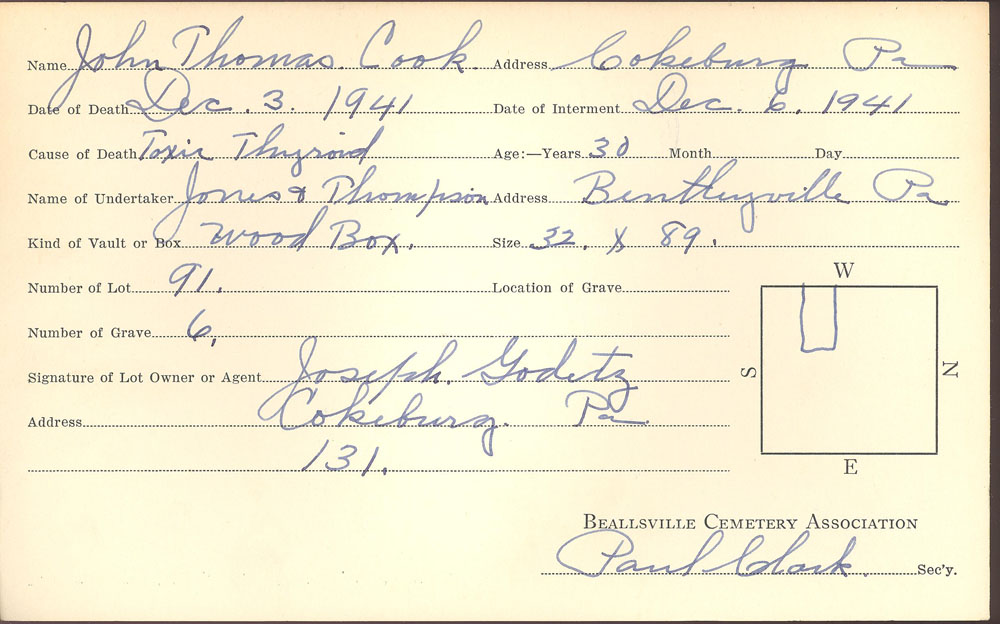 Name John Thomas. Cook. Address Cokeburg Pa
Date of Death Dec. 3. 1941 Date of Interment Dec. 6, 1941
Cause of Death Toxic Thyroid Age:—Years 30 Month Day
Name of Undertaker Jones & Thompson Address Bentleyville Pa.
Kind of Vault or Box Wood Box. Size 32. X 89.
Number of Lot 91. Location of Grave
W
Number of Grave 6,
Signature of Lot Owner or Agent Joseph. Godetz
S N
Address Cokeburg. Pa.
131.
E
BEALLSVILLE CEMETERY ASSOCIATION
Paul Clark. Sec'y.